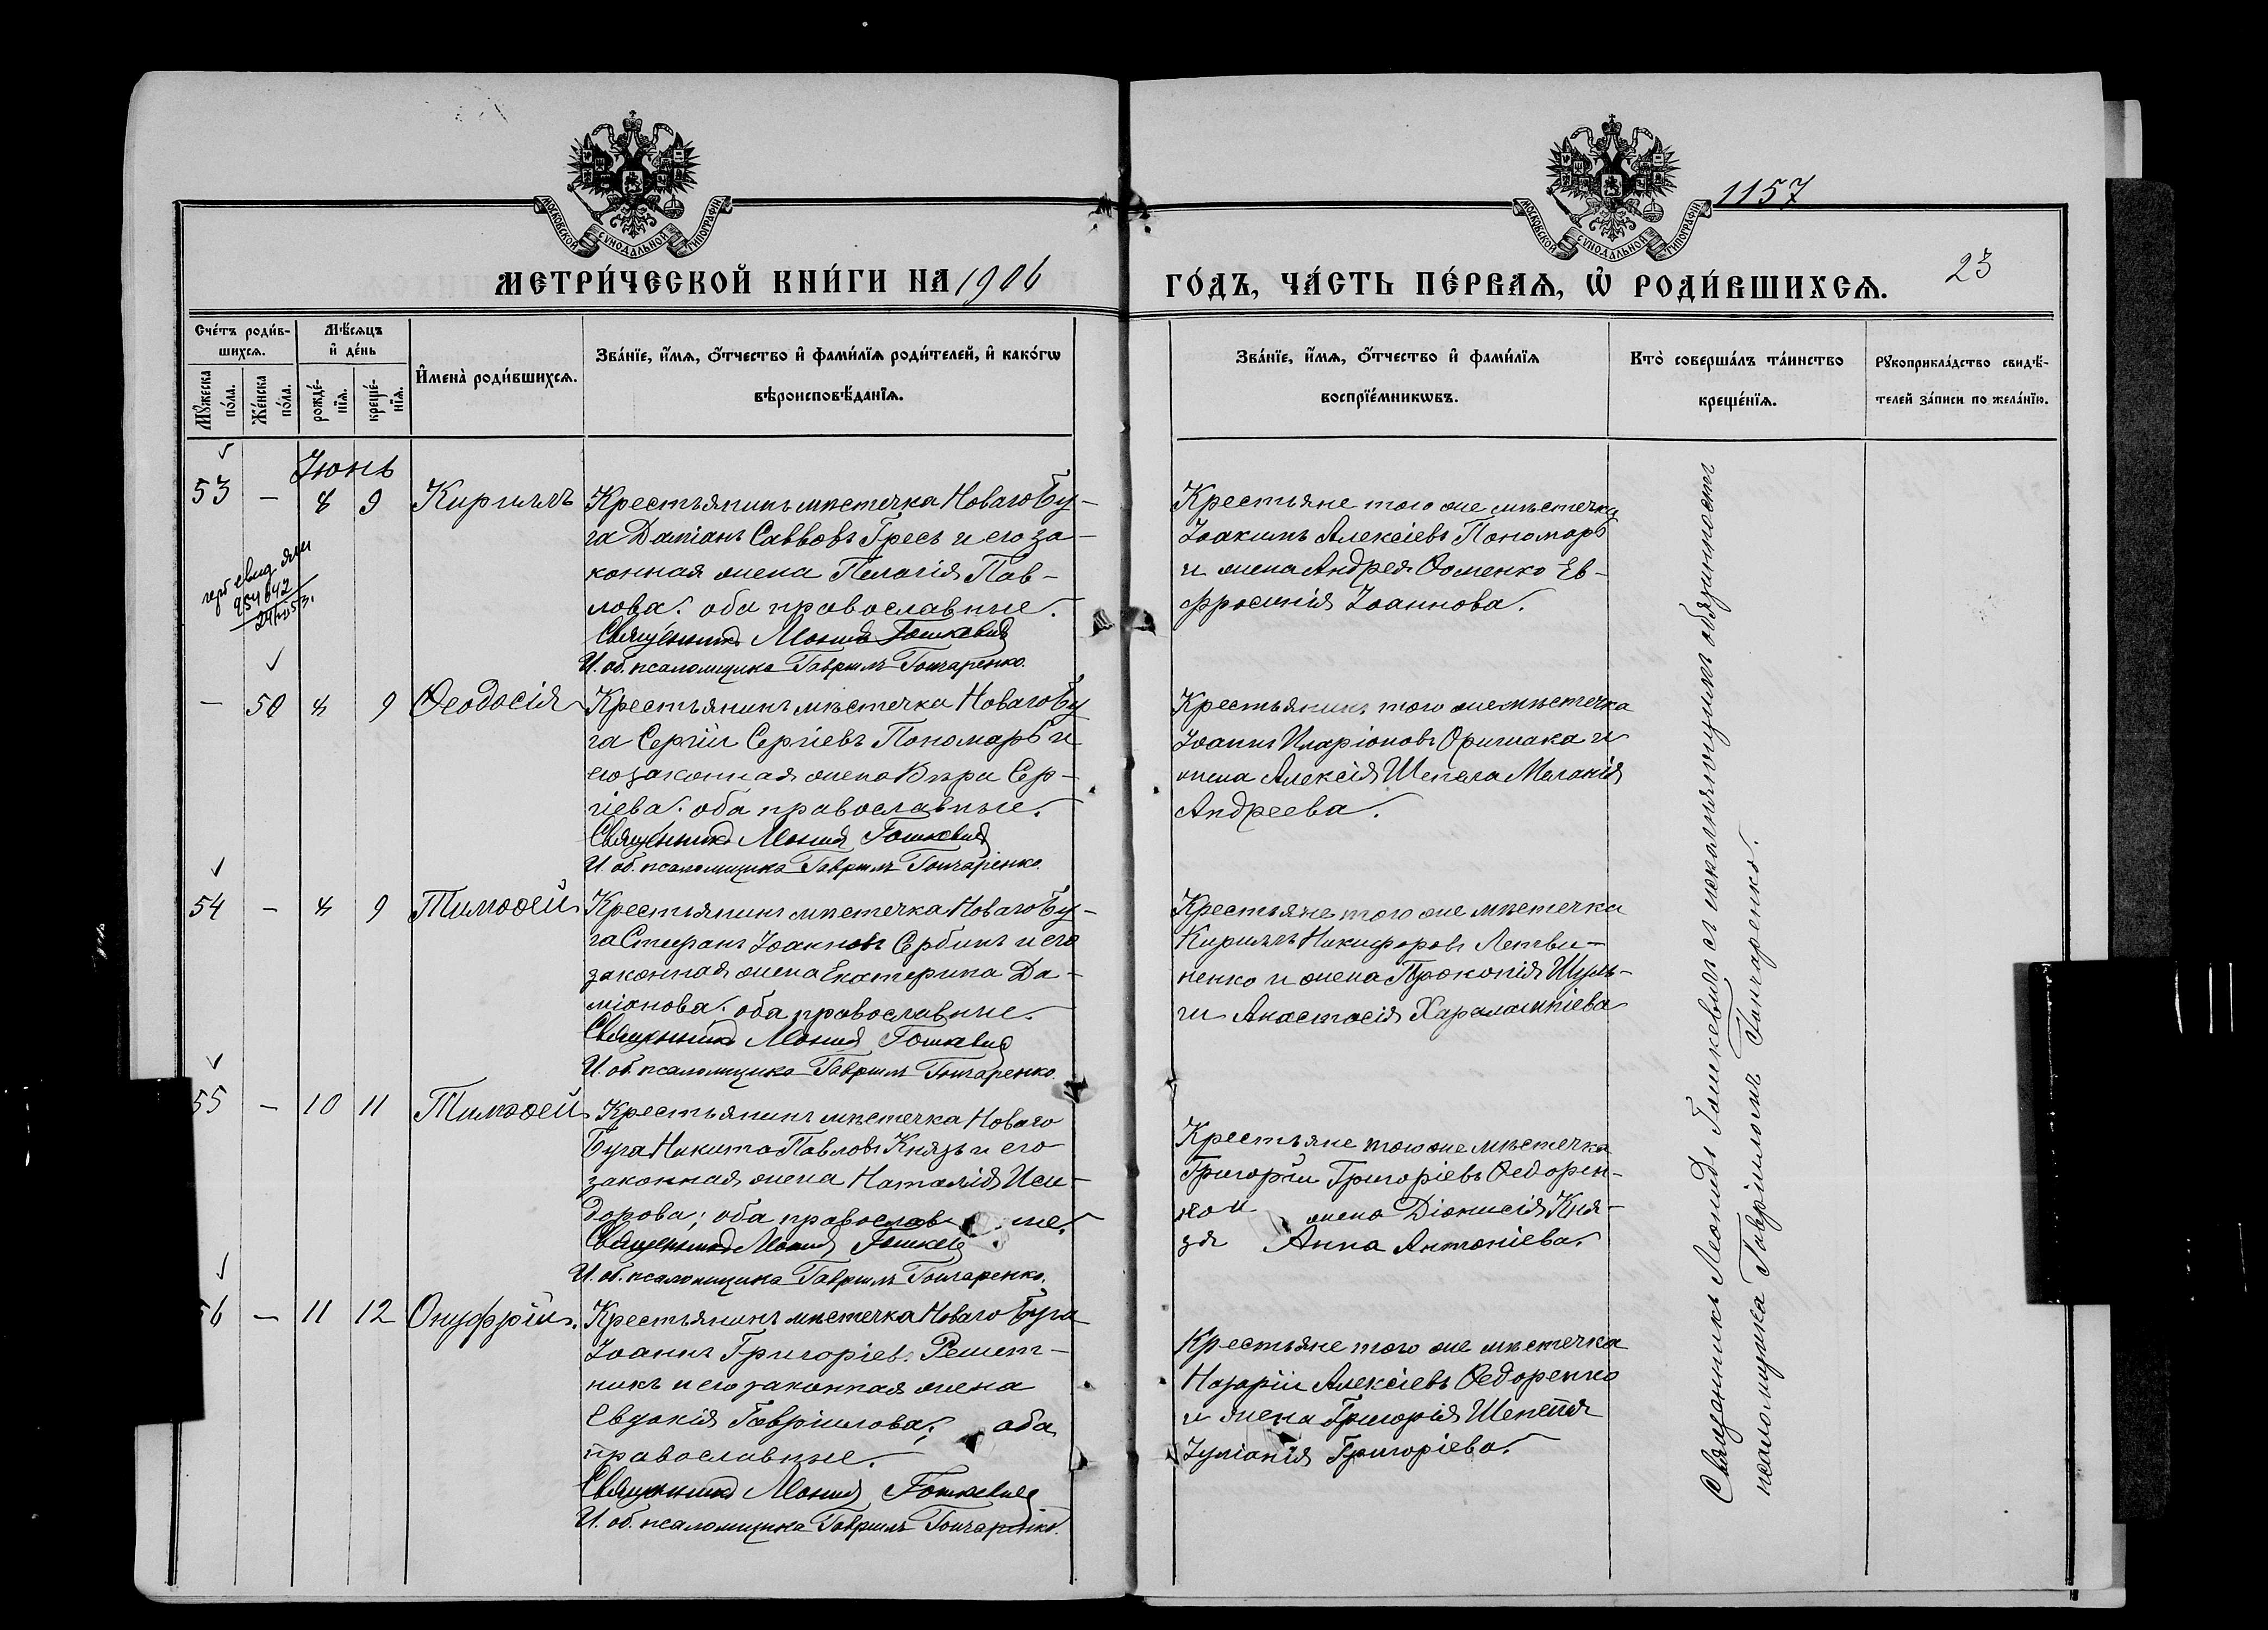 МОСКОВСКОЙ СѴНОДАЛЬНОЙ ТИПОГРАФІИ
МОСКОВСКОЙ СѴНОДАЛЬНОЙ ТИПОГРАФІИ
1157
МЕТРИ́ЧЕСКОЙ КНИ́ГИ НА 1906
ГО́ДЪ, ЧА́СТЬ ПЕ́РВАѦ, Ѡ҆ РОДИ́ВШИХСѦ.
23
Сче́тъ роди́в-
шихсѧ.
Мѣ́сѧцъ
и҆ де́нь
Мꙋ́жеска
по́ла.
Же́нска
по́ла.
рожде́-
нїѧ.
креще́-
нїѧ.
И҆мена̀ роди́вшихсѧ.
Зва́нїе, и҆́мѧ, ѻ҆́тчество и҆ фами́лїѧ роди́телей, и҆ како́гѡ
вѣроисповѣ́данїѧ.
Зва́нїе, и҆́мѧ, ѻ҆́тчество и҆ фами́лїѧ
воспрїе́мникѡвъ.
Кто̀ соверша́лъ та́инство
креще́нїѧ.
Рꙋкоприкла́дство свидѣ́-
телей за́писи по жела́нїю.
Іюнь
53 — 8 9 Кириллъ
Крестьянинъ мѣстечка Новаго Бу-
га Даміанъ Саввовъ Гресь и его за-
конная жена Пелагія Пав-
лова: оба православные.
Священникъ Леонидъ Гошкевичъ
И. об. псаломщика Гавріилъ Гончаренко.
Крестьяне того же мѣстечка
Іоакимъ Алексіевъ Пономарь
и жена Андрея Ѳоменко Ев-
фросинія Іоаннова.
— 50 8 9 Ѳеодосія
Крестьянинъ мѣстечка Новаго Бу
га Сергій Сергіевъ Пономарь и
его законная жена Вѣра Сер-
гіева: оба православные.
Священникъ Леонидъ Гошкевичъ
И. об. псаломщика Гавріилъ Гончаренко.
Крестьянинъ того же мѣстечка
Іоаннъ Иларіоновъ и
жена Алексія Шепеля Меланія
Андреева.
54 — 8 9 Тимоѳей
Крестьянинъ мѣстечка Новаго Бу-
га Стефанъ Іоанновъ Сербинъ и его
законная жена Екатерина Да-
міанова: оба православные.
Священникъ Леонидъ Гошкевичъ
И. об. псаломщика Гавріилъ Гончаренко.
Крестьяне того же мѣстечка
Кириллъ Никифоровъ Летви-
ненко и жена Прокопія Шуль-
ги Анастасія Харалампіева
55 — 10 11 Тимоѳей
Крестьянинъ мѣстечка Новаго
Буга Никита Павловъ Князь и его
законная жена Наталія Иси-
дорова; оба православные.
Священникъ Леонидъ Гошкевичъ
И. об. псаломщика Гавріилъ Гончаренко.
Крестьяне того же мѣстечка
Григорій Григоріевъ Ѳедорен-
ко и жена Діонисія Кня-
зя Анна Антоніева.
56 — 11 12 Онуфрій.
Крестьянинъ мѣстечка Новаго Буга
Іоаннъ Григоріев. Решет-
никъ и его законная жена
Евдокія Гавріилова; оба
православные.
Священникъ Леонидъ Гошкевичъ
И. об. псаломщика Гавріилъ Гончаренко.
Крестьяне того же мѣстечка
Назарій Алексіевъ Ѳедоренко
и жена Григорія Шепеля
Іуліанія Григоріева.
Священникъ Леонидъ Гошкевичъ съ исполняющимъ обязанность
псаломщика Гавріиломъ Гончаренко.